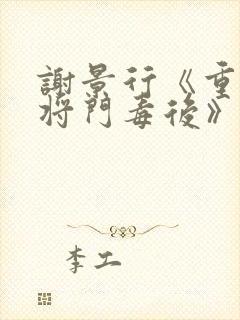 謝景行《重
将門毒後》
李工